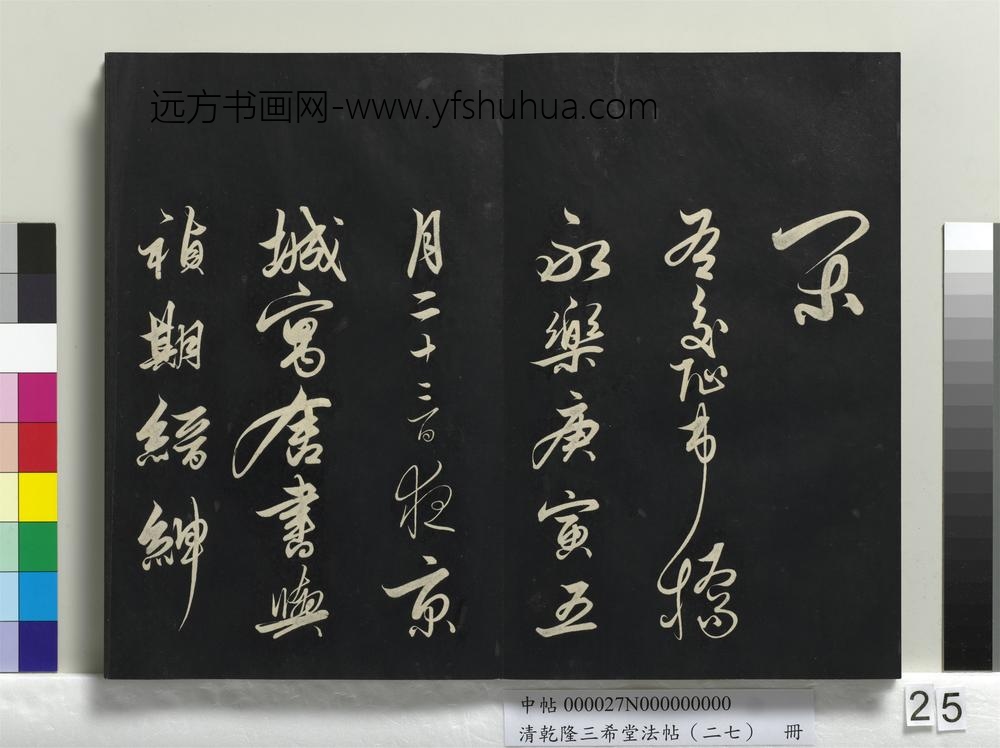 远方书画网-www.yfshuhua.com
橋
永樂庚寅五
月二十三日夜京
城寓舍書與
禎期縉紳
中帖 000027N000000000
清乾隆三希堂法帖（二七） 冊
25